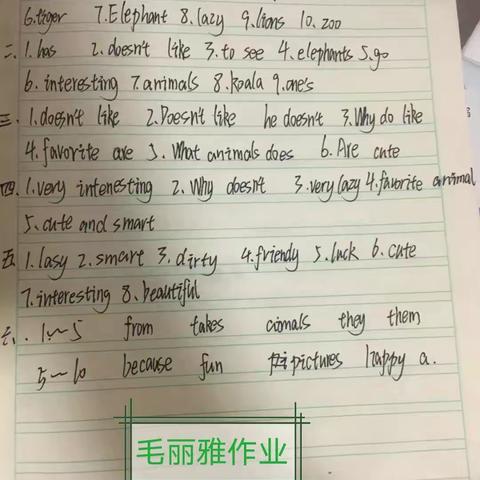 6.tiger 7.Elephant 8.lazy 9.lions 10.zoo
二.1.has 2.doesn't like 3.to see 4.elephants 5.go
6.interesting 7.animals 8.koala 9.one's
三.1.doesn't like 2.Doesn't like he doesn't 3.Why do like
4.favorite are 5.What animals does 6.Are cute
四.1.very intenesting 2.Why doesn't 3.very lazy 4.favorite animal
5.cute and smart
五.1.lasy 2.smart 3.dirty 4.friendy 5.luck 6.cute
7.interesting 8.beautiful
六.1~5 from takes aimals they them
5~10 because fun pictures happy a.
毛丽雅作业